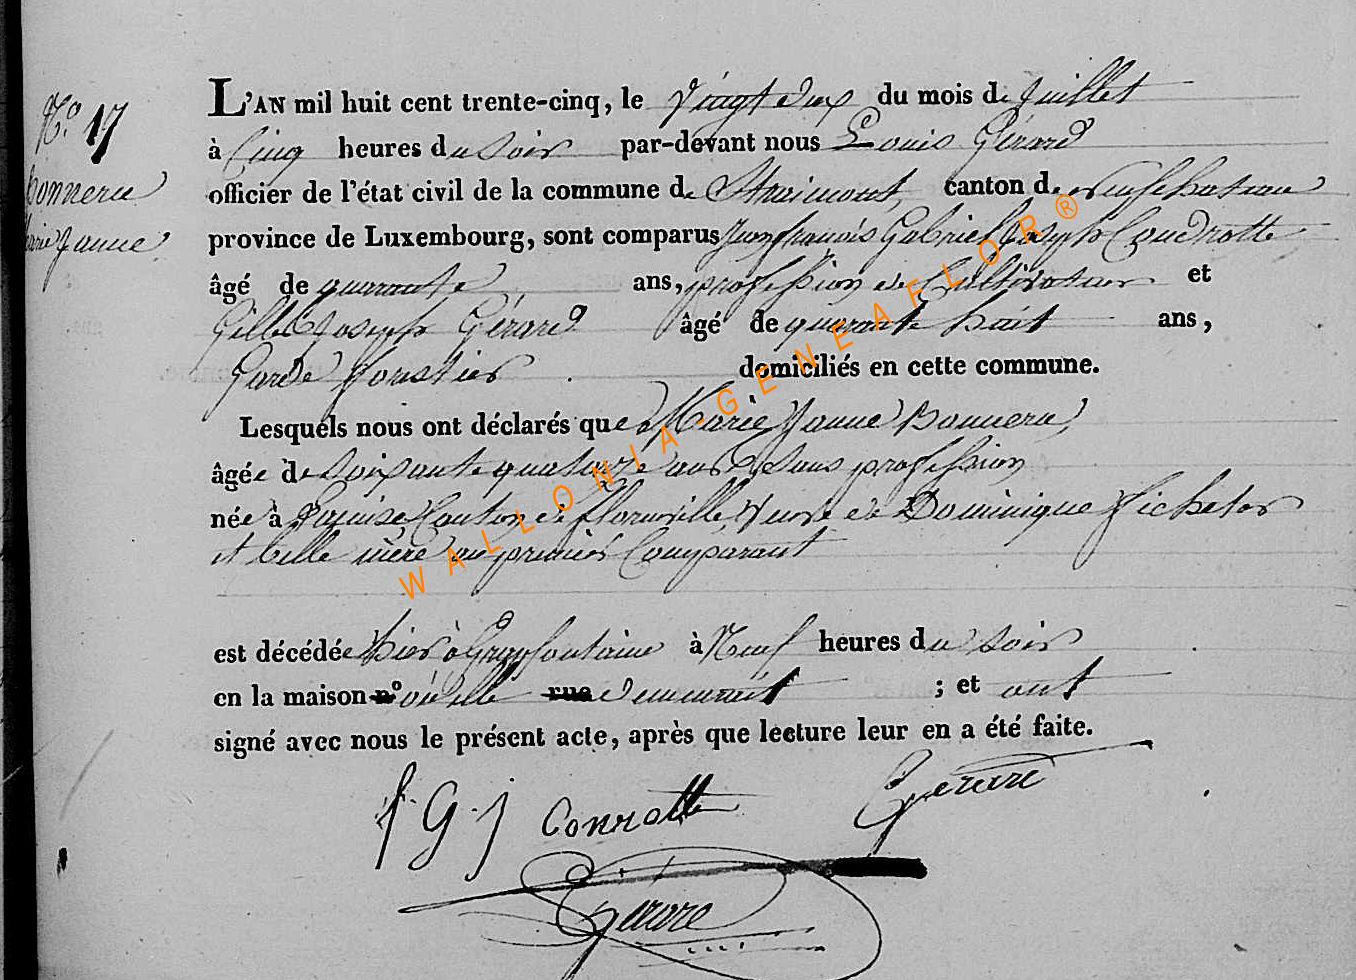 N.º 17
Bonneru
Marie Janne
L'AN mil huit cent trente-cinq, le vingt deux du mois de juillet
à cinq heures du soir par-devant nous Louis Gérard
officier de l'état civil de la commune de Straimont, canton de neufchateau
province de Luxembourg, sont comparus Jean françois Gabriel Joseph Condrotte
âgé de quarante ans, profession de Cultivateur et
Gille Joseph Gérard âgé de quarante huit ans,
Garde forestier domiciliés en cette commune.
Lesquels nous ont déclarés que Marie Janne Bonneru,
âgée de soixante quatorze ans Sans profession
née à canton de florenville, veuve de Dominique Fichelor
et belle mère au premier Comparant
est décédée hier à Grapfontaine à Neuf heures du soir
en la maison n.º où elle rue demeurait ; et ont
signé avec nous le présent acte, après que lecture leur en a été faite.
f. G. j Conrotte Gerard
Gérard
WALLONIA-GENEAFLOR®